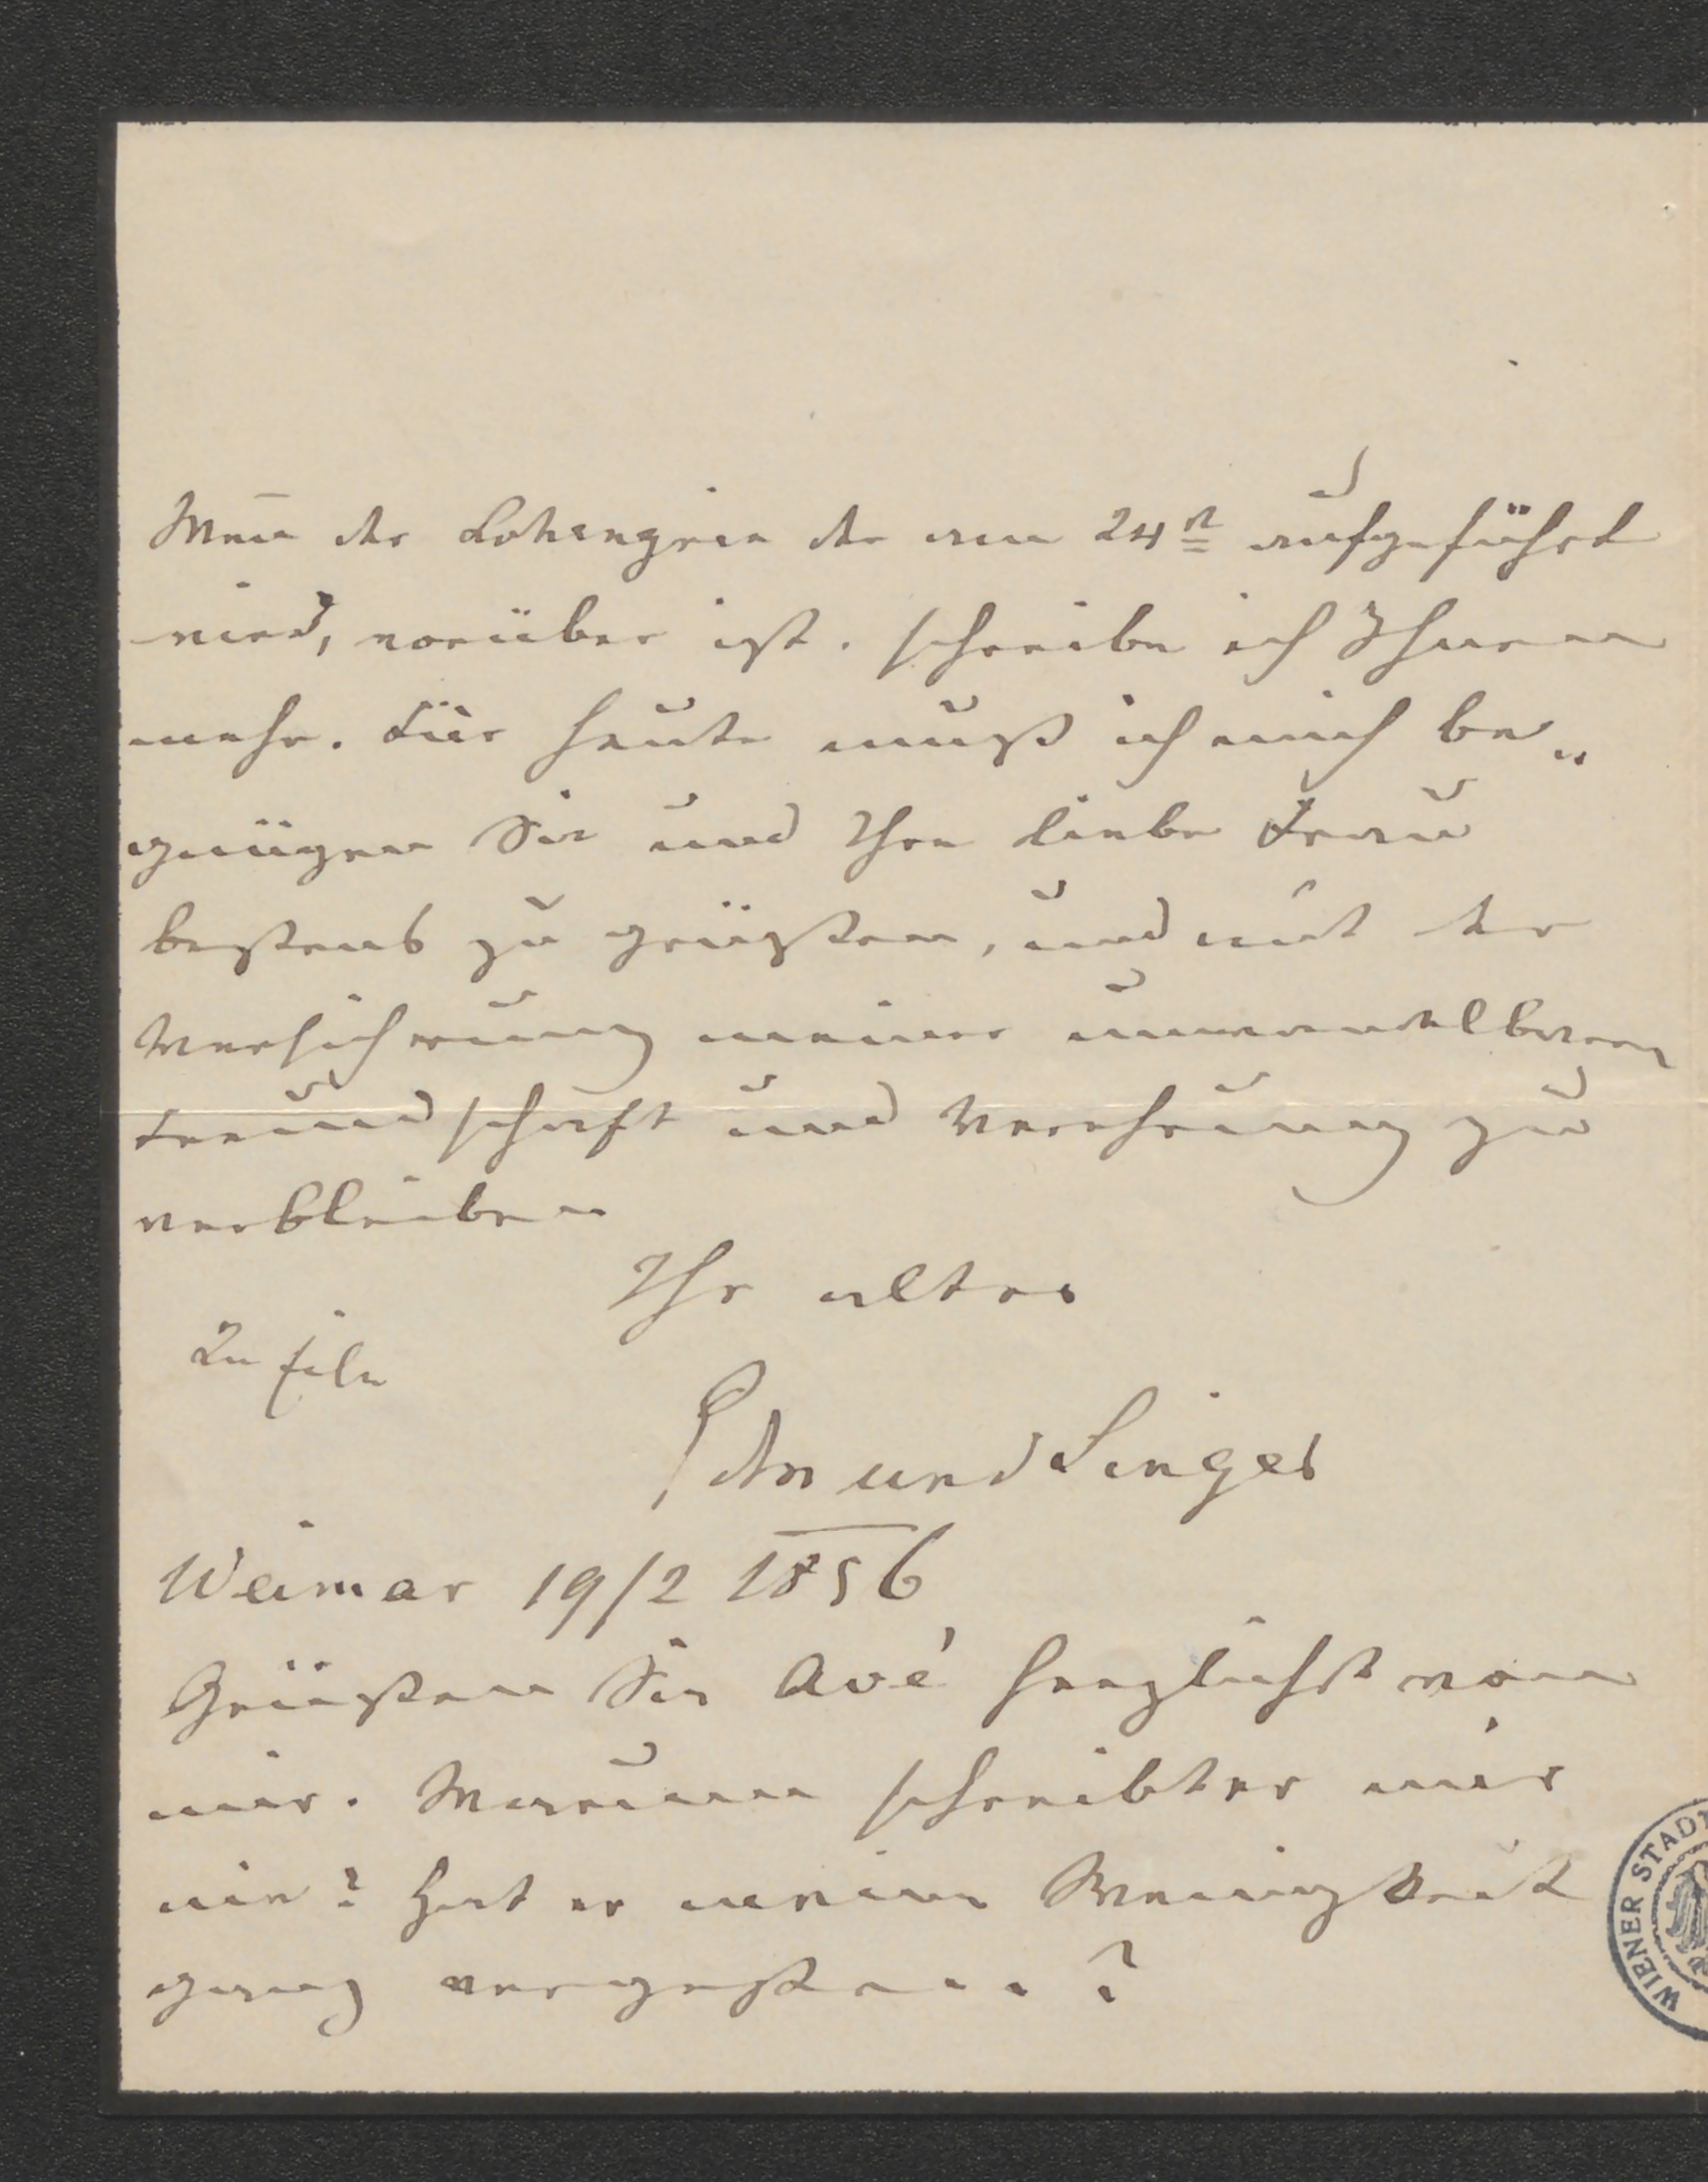 Wen̄ der Lohengrin der am 24ⁿ aufgeführt
wird, vorüber ist. schreibe ich Ihnen
mehr. Für heute muß ich mich be„
gnügen Sie und Ihre liebe Frau
bestens zu grüßen, und mit der
Versicherung meiner unwandelbaren
Freundschaft und Verehrung zu
verbleiben
Ihr alter
In Eile
Edmund Singer
Weimar 19/2 1856
Grüßen Sie Avé herzlichst von
mir. Warum schreibt er mir
nie? Hat er meine Wenigkeit
ganz vergessen..?
WIENER STADT